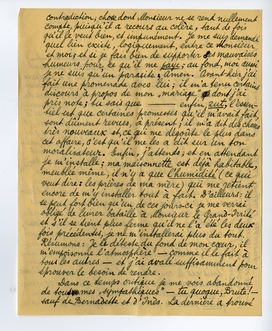 contradiction, chose dont Monsieur ne se rend nullement
compte puisqu'il a recours au colère, tant de fois
qu'il le veut bien, et impunément. Je me suis demandé
quel lien existe, logiquement, entre ce monsieur,
et moi et si je fais bien de supporter ses mauvaises
humeurs pour ce qu'il me paye; au fond, moi aussi
je ne suis qu'un parasite. Amen. Avant-hier j'ai
fait une promenade avec lui; il m'a tenu certains
discours à propos de mon mariage dont j'ai
pris note; tu sais que — enfin, zut, l'essen-
tiel est que certaines promesses qu'il m'avait fait,
sont dûment levées, à présent; il m'a dit des choses
très nouveaux et, ce qui me dégoûte le plus dans
cet affaire, c'est qu'il me les a dit sur un ton
moralisateur. Enfin, j'attends; et en attendant
je m'installe; ma maisonnette est déjà habitable,
meublée même, il n'y a que l'humidité (ce peut
veut dire: les prières de ma mère) qui me retient
encore de m'y installer tout à fait. D'ailleurs: il
se peut fort bien qu'un de ces jours-ci je me verse
obligé de livrer bataille à Monsieur le Grand-Turc
et s'il se sent plus ferme qu'il ne l'a été les deux
fois précédentes, je ne m'installerai plus du tout.
Résumons: Je le déteste du fond de mon cœur, il
m'empoisonne l'atmosphère — comme il le fait à
tous les autres — et j'ai décrit suffisamment pour
éprouver le besoin de rendre.
Dans ce temps critique je me vois abandonné
de mes sympathiques — tu quoque, Brute! —
sauf de Bernadette et d'Inès. La dernière a trouvé